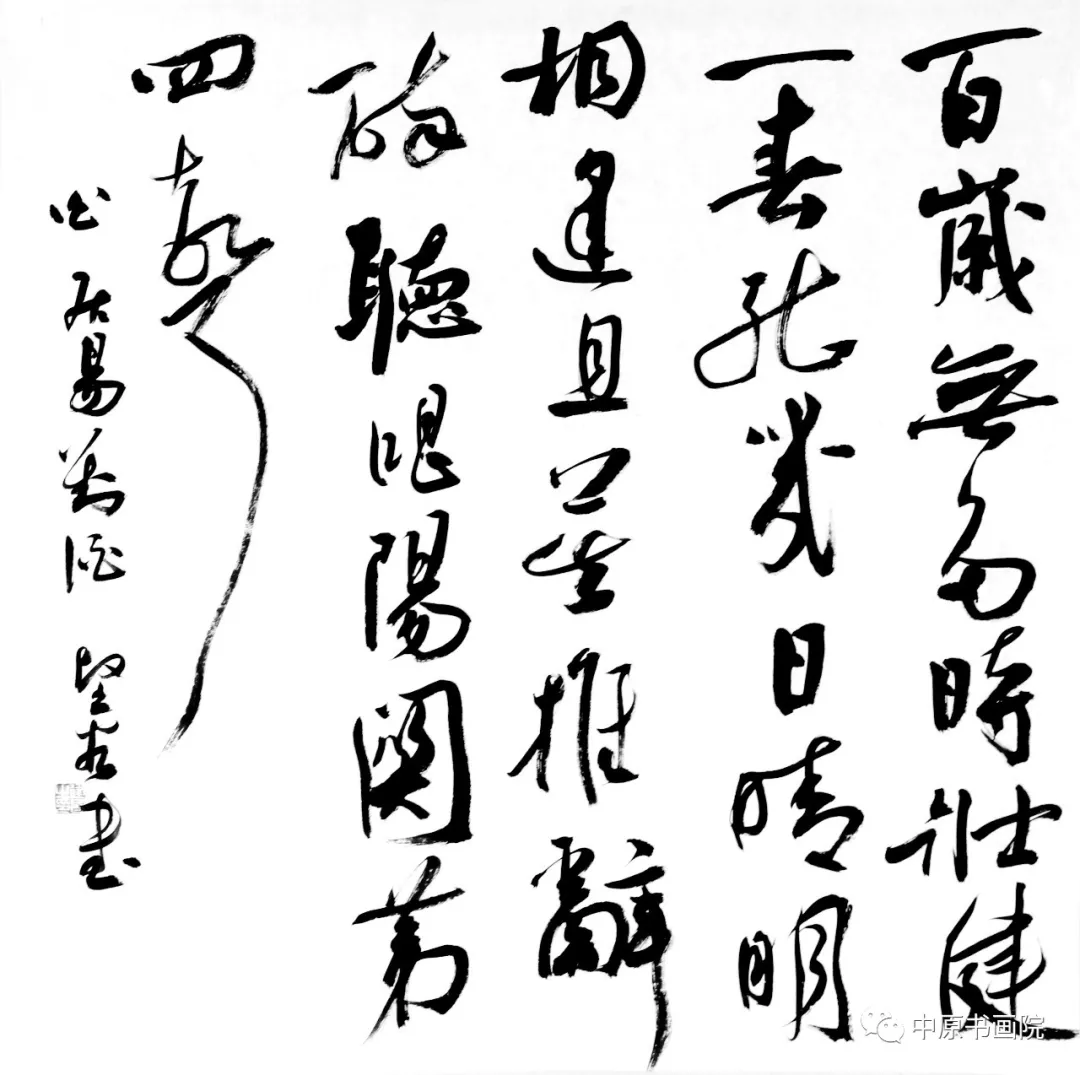 百歲無多時壯健
一春能幾日晴明
相逢且莫推辭
醉聽唱陽關第
四聲
白居易對酒 書
中原书画院